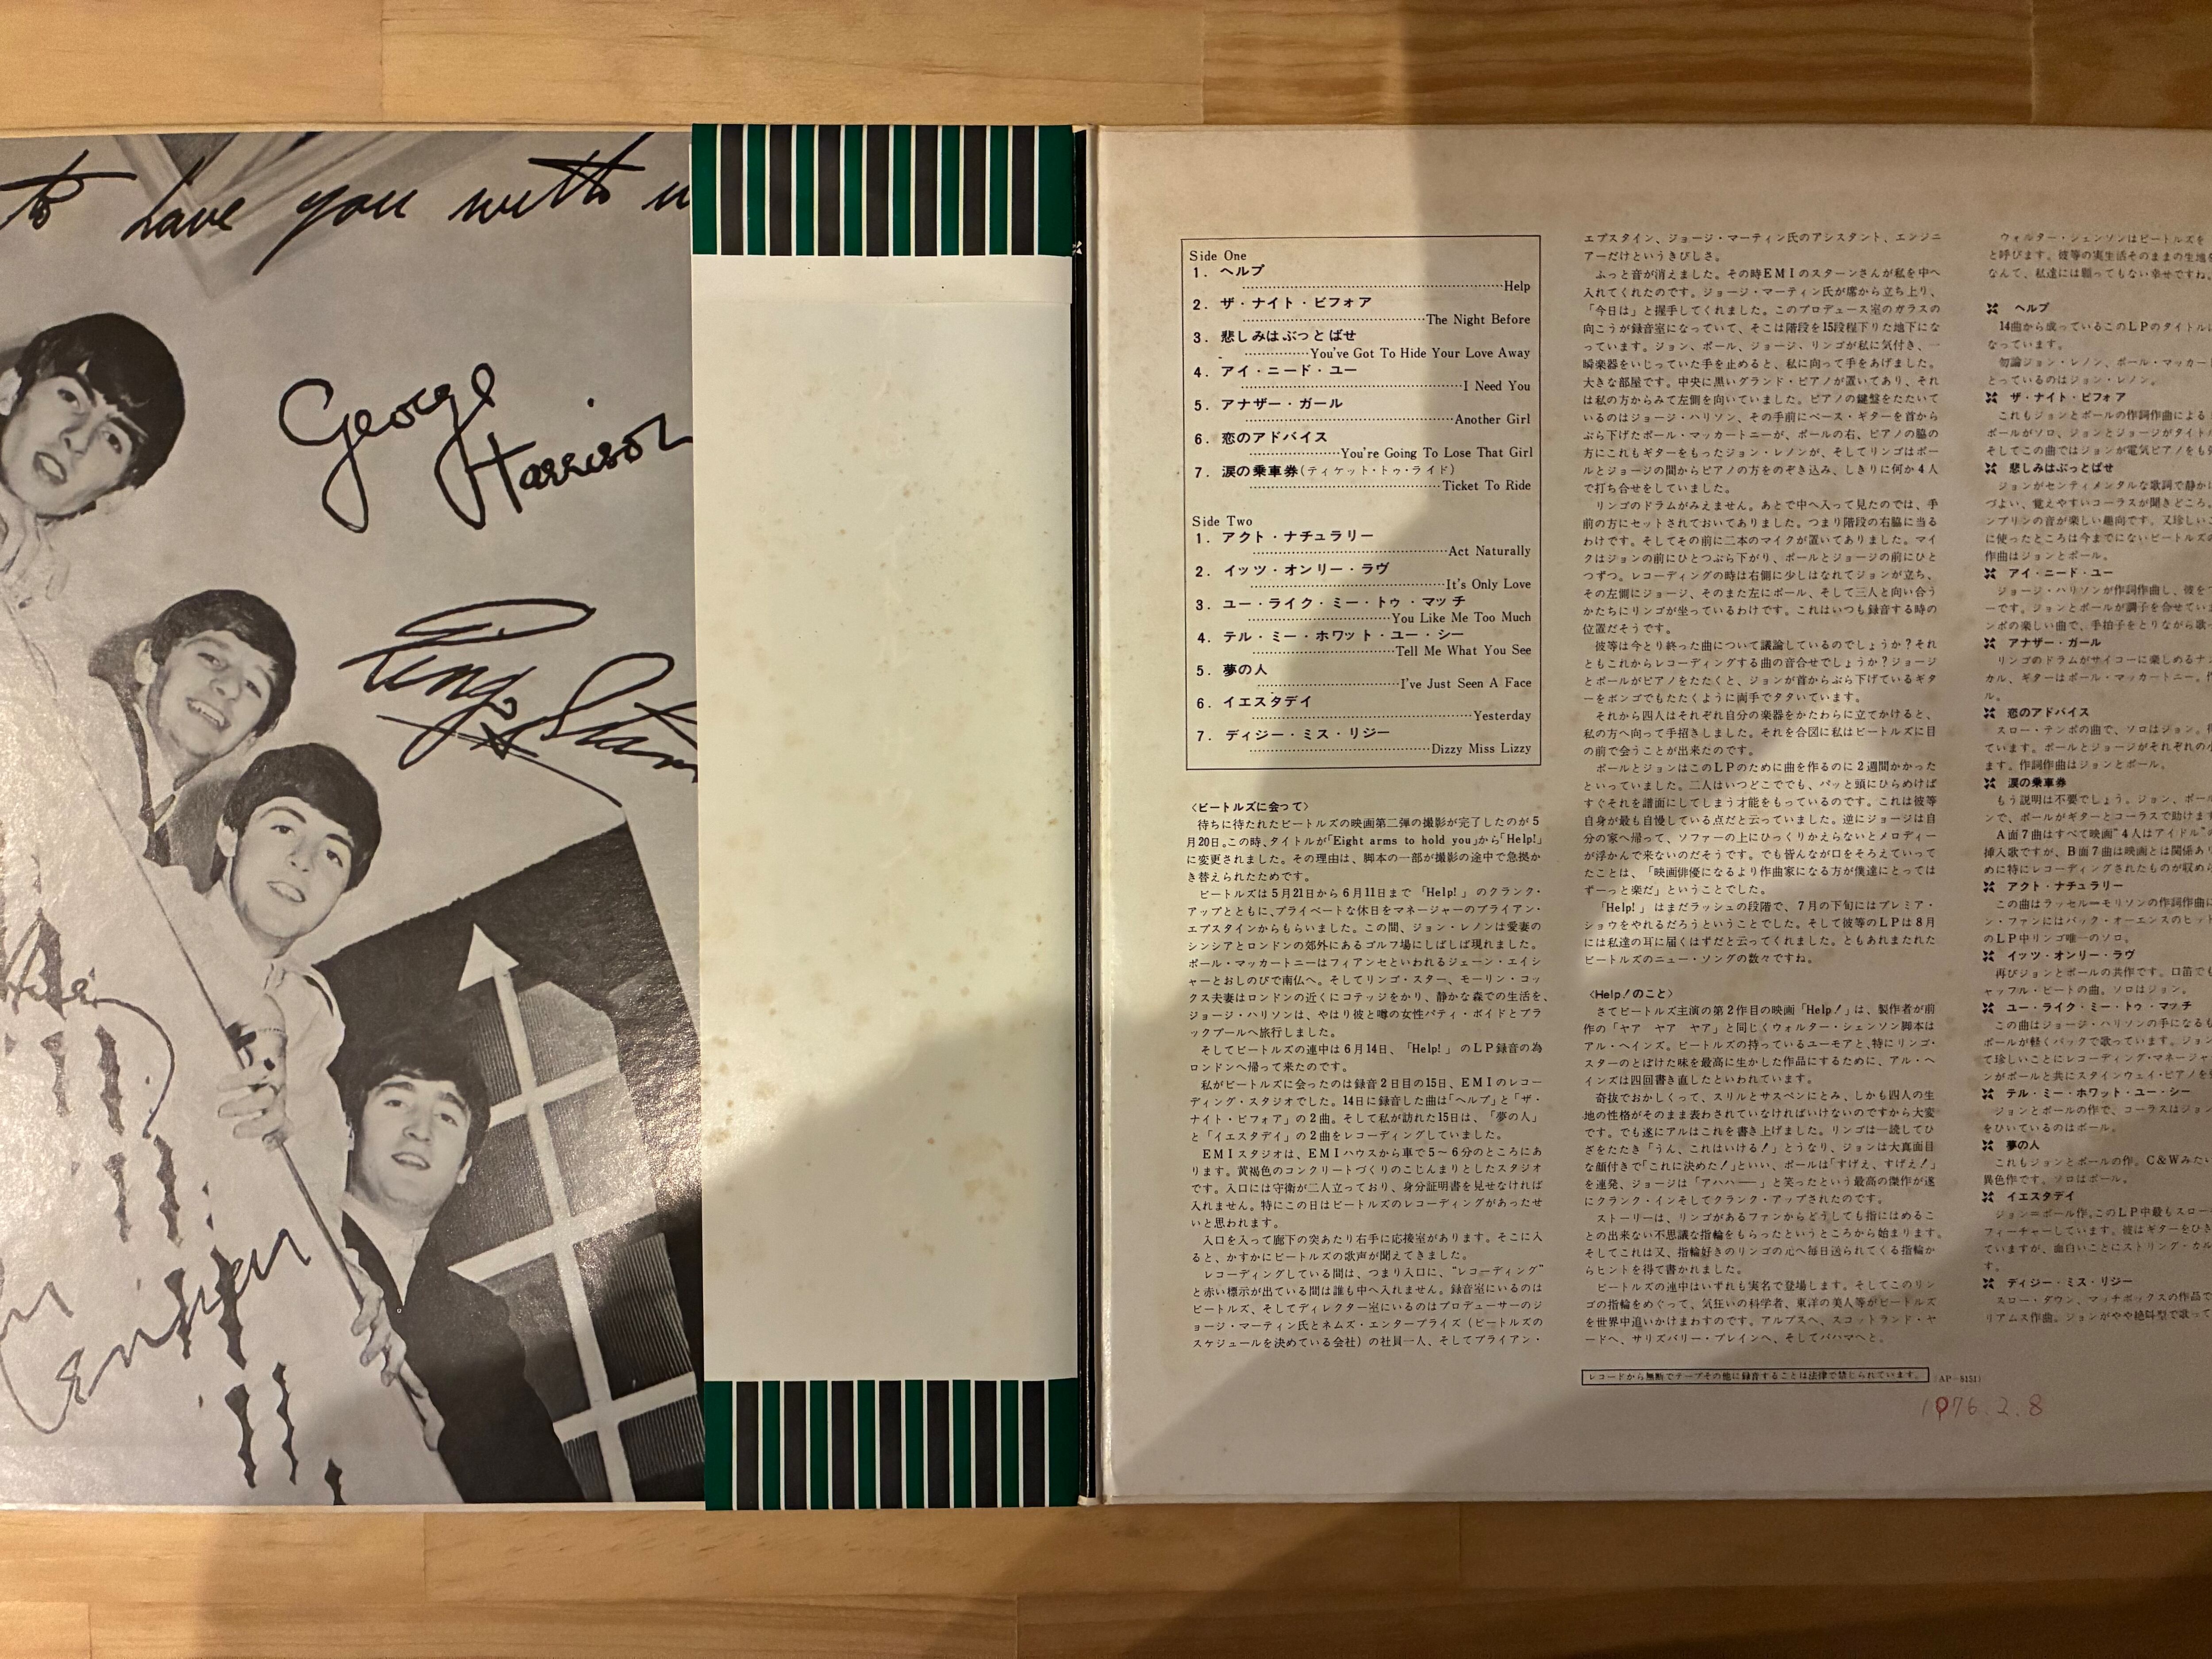 to have you with
George
Harrison
Ringo
Side One
1. ヘルプ
Help
2. ザ・ナイト・ビフォア
The Night Before
3. 悲しみはぶっとばせ
You've Got To Hide Your Love Away
4. アイ・ニード・ユー
I Need You
5. アナザー・ガール
Another Girl
6. 恋のアドバイス
You're Going To Lose That Girl
7. 涙の乗車券(ティケット・トゥ・ライド)
Ticket To Ride
Side Two
1. アクト・ナチュラリー
Act Naturally
2. イッツ・オンリー・ラヴ
It's Only Love
3. ユー・ライク・ミー・トゥ・マッチ
You Like Me Too Much
4. テル・ミー・ホワット・ユー・シー
Tell Me What You See
5. 夢の人
I've Just Seen A Face
6. イエスタデイ
Yesterday
7. ディジー・ミス・リジー
Dizzy Miss Lizzy
〈ビートルズに会って〉
待ちに待たれたビートルズの映画第二弾の撮影が完了したのが5
月20日。この時、タイトルが「Eight arms to hold you」から「Help!」
に変更されました。その理由は、脚本の一部が撮影の途中で急拠か
き替えられたためです。
ビートルズは5月21日から6月11日まで「Help!」のクランク・
アップとともに、プライベートな休日をマネージャーのブライアン・
エプスタインからもらいました。この間、ジョン・レノンは愛妻の
シンシアとロンドンの郊外にあるゴルフ場にしばしば現れました。
ポール・マッカートニーはフィアンセといわれるジェーン・エイシ
ャーとおしのびで南仏へ。そしてリンゴ・スター、モーリン・コッ
クス夫妻はロンドンの近くにコテッジをかり、静かな森での生活を、
ジョージ・ハリソンは、やはり彼と噂の女性パティ・ボイドとブラ
ックプールへ旅行しました。
そしてビートルズの連中は6月14日、「Help!」のLP録音の為
ロンドンへ帰って来たのです。
私がビートルズに会ったのは録音2日目の15日、EMIのレコー
ディング・スタジオでした。14日に録音した曲は「ヘルプ」と「ザ・
ナイト・ビフォア」の2曲。そして私が訪れた15日は、「夢の人」
と「イエスタデイ」の2曲をレコーディングしていました。
EMIスタジオは、EMIハウスから車で5～6分のところにあ
ります。黄褐色のコンクリートづくりのこじんまりとしたスタジオ
です。入口には守衛が二人立っており、身分証明書を見せなければ
入れません。特にこの日はビートルズのレコーディングがあったせ
いと思われます。
入口を入って廊下の突あたり右手に応接室があります。そこに入
ると、かすかにビートルズの歌声が聞えてきました。
レコーディングしている間は、つまり入口に、"レコーディング"
と赤い標示が出ている間は誰も中へ入れません。録音室にいるのは
ビートルズ、そしてディレクター室にいるのはプロデューサーのジ
ョージ・マーティン氏とネムズ・エンタープライズ(ビートルズの
スケジュールを決めている会社)の社員一人、そしてブライアン・
エプスタイン、ジョージ・マーティン氏のアシスタント、エンジニ
アーだけというきびしさ。
ふっと音が消えました。その時EMIのスターンさんが私を中へ
入れてくれたのです。ジョージ・マーティン氏が席から立ち上り、
「今日は」と握手してくれました。このプロデュース室のガラスの
向こうが録音室になっていて、そこは階段を15段程下りた地下にな
っています。ジョン、ポール、ジョージ、リンゴが私に気付き、一
瞬楽器をいじっていた手を止めると、私に向って手をあげました。
大きな部屋です。中央に黒いグランド・ピアノが置いてあり、それ
は私の方からみて左側を向いていました。ピアノの鍵盤をたたいて
いるのはジョージ・ハリソン、その手前にベース・ギターを首から
ぶら下げたポール・マッカートニーが、ポールの右、ピアノの脇の
方にこれもギターをもったジョン・レノンが、そしてリンゴはポー
ルとジョージの間からピアノの方をのぞき込み、しきりに何か4人
で打ち合せをしていました。
リンゴのドラムがみえません。あとで中へ入って見たのでは、手
前の方にセットされておいてありました。つまり階段の右脇に当る
わけです。そしてその前に二本のマイクが置いてありました。マイ
クはジョンの前にひとつぶら下がり、ポールとジョージの前にひと
つずつ。レコーディングの時は右側に少しはなれてジョンが立ち、
その左側にジョージ、そのまた左にポール、そして三人と向い合う
かたちにリンゴが坐っているわけです。これはいつも録音する時の
位置だそうです。
彼等は今とり終った曲について議論しているのでしょうか?それ
ともこれからレコーディングする曲の音合せでしょうか?ジョージ
とポールがピアノをたたくと、ジョンが首からぶら下げているギタ
ーをボンゴでもたたくように両手でタタいています。
それから四人はそれぞれ自分の楽器をかたわらに立てかけると、
私の方へ向って手招きしました。それを合図に私はビートルズに目
の前で会うことが出来たのです。
ポールとジョンはこのLPのために曲を作るのに2週間かかった
といっていました。二人はいつどこででも、パッと頭にひらめけば
すぐそれを譜面にしてしまう才能をもっているのです。これは彼等
自身が最も自慢している点だと云っていました。逆にジョージは自
分の家へ帰って、ソファーの上にひっくりかえらないとメロディー
が浮かんで来ないのだそうです。でも皆んなが口をそろえていって
たことは、「映画俳優になるより作曲家になる方が僕達にとっては
ずーっと楽だ」ということでした。
「Help!」はまだラッシュの段階で、7月の下旬にはプレミア・
ショウをやれるだろうということでした。そして彼等のLPは8月
には私達の耳に届くはずだと云ってくれました。ともあれまたれた
ビートルズのニュー・ソングの数々ですね。
〈Help!のこと〉
さてビートルズ主演の第2作目の映画「Help!」は、製作者が前
作の「ヤア ヤア ヤア」と同じくウォルター・シェンソン脚本は
アル・ヘインズ。ビートルズの持っているユーモアと、特にリンゴ・
スターのとぼけた味を最高に生かした作品にするために、アル・ヘ
インズは四回書き直したといわれています。
奇抜でおかしくって、スリルとサスペンにとみ、しかも四人の生
地の性格がそのまま表わされていなければいけないのですから大変
です。でも遂にアルはこれを書き上げました。リンゴは一読してひ
ざをたたき「うん、これはいける!」とうなり、ジョンは大真面目
な顔付きで「これに決めた!」といい、ポールは「すげえ、すげえ!」
を連発、ジョージは「アハハ――」と笑ったという最高の傑作が遂
にクランク・インそしてクランク・アップされたのです。
ストーリーは、リンゴがあるファンからどうしても指にはめるこ
との出来ない不思議な指輪をもらったというところから始まります。
そしてこれは又、指輪好きのリンゴの元へ毎日送られてくる指輪か
らヒントを得て書かれました。
ビートルズの連中はいずれも実名で登場します。そしてこのリン
ゴの指輪をめぐって、気狂いの科学者、東洋の美人等がビートルズ
を世界中追いかけまわすのです。アルプスへ、スコットランド・ヤ
ードへ、サリズバリー・プレインへ、そしてバハマへと。
レコードから無断でテープその他に録音することは法律で禁じられています。
(AP-8151)
1976.2.8
ウォルター・シェンソンはビートルズを
と呼びます。彼等の実生活そのままの生地を
なんて、私達には願ってもない幸せですね。
ヘルプ
14曲から成っているこのLPのタイトルに
なっています。
勿論ジョン・レノン、ポール・マッカート
とっているのはジョン・レノン。
ザ・ナイト・ビフォア
これもジョンとポールの作詞作曲による
ポールがソロ、ジョンとジョージがタイトル
そしてこの曲ではジョンが電気ピアノをも
悲しみはぶっとばせ
ジョンがセンティメンタルな歌詞で静かに
づよい、覚えやすいコーラスが聞きどころ。
ンブリンの音が楽しい趣向です。又珍しいこ
に使ったところは今までにないビートルズの
作曲はジョンとポール。
アイ・ニード・ユー
ジョージ・ハリソンが作詞作曲し、彼を
ーです。ジョンとポールが調子を合せてい
ンポの楽しい曲で、手拍子をとりながら歌
アナザー・ガール
リンゴのドラムがサイコーに楽しめるナン
カル、ギターはポール・マッカートニー。作
ル。
恋のアドバイス
スロー・テンポの曲で、ソロはジョン。
ています。ポールとジョージがそれぞれの
ます。作詞作曲はジョンとポール。
涙の乗車券
もう説明は不要でしょう。ジョン、ポール
ンで、ポールがギターとコーラスで助けます
A面7曲はすべて映画"4人はアイドル"の
挿入歌ですが、B面7曲は映画とは関係あり
めに特にレコーディングされたものが収めら
アクト・ナチュラリー
この曲はラッセル=モリソンの作詞作曲に
ン・ファンにはバック・オーエンスのヒット
のLP中リンゴ唯一のソロ。
イッツ・オンリー・ラヴ
再びジョンとポールの共作です。口笛でも
ャッフル・ビートの曲。ソロはジョン。
ユー・ライク・ミー・トゥ・マッチ
この曲はジョージ・ハリソンの手になるも
ポールが軽くバックで歌っています。ジョン
て珍しいことにレコーディング・マネージャ
ンがポールと共にスタインウェイ・ピアノを
テル・ミー・ホワット・ユー・シー
ジョンとポールの作で、コーラスはジョン
をひいているのはポール。
夢の人
これもジョンとポールの作。C&Wみたい
異色作です。ソロはポール。
イエスタデイ
ジョン=ポール作。このLP中最もスロー
フィーチャーしています。彼はギターをひき
ていますが、面白いことにストリング・カル
す。
ディジー・ミス・リジー
スロー・ダウン、マッチボックスの作品で
リアムス作曲。ジョンがやや絶叫型で歌って